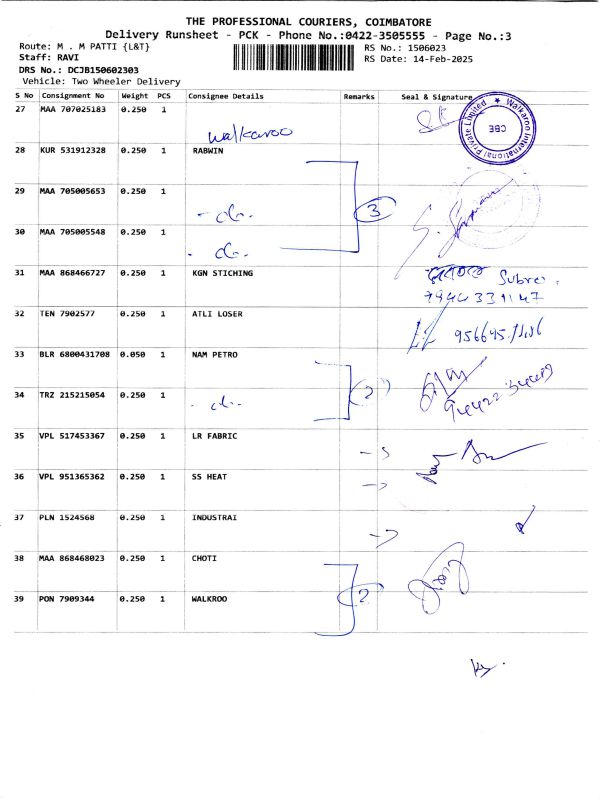 THE PROFESSIONAL COURIERS, COIMBATORE
Delivery Runsheet - PCK - Phone No.:0422-3505555 - Page No.:3
Route: M . M PATTI {L&T} RS No.: 1506023
Staff: RAVI RS Date: 14-Feb-2025
DRS No.: DCJB150602303
Vehicle: Two Wheeler Delivery
S No Consignment No Weight PCS Consignee Details Remarks Seal & Signature
27 MAA 707025183 0.250 1 walkaroo
Walkaroo International Private Limited CBE
28 KUR 531912328 0.250 1 RABWIN
29 MAA 705005653 0.250 1 - do - 3
30 MAA 705005548 0.250 1 - do -
31 MAA 868466727 0.250 1 KGN STICHING
32 TEN 7902577 0.250 1 ATLI LOSER
33 BLR 6800431708 0.050 1 NAM PETRO
34 TRZ 215215054 0.250 1 - do - 2
35 VPL 517453367 0.250 1 LR FABRIC
36 VPL 951365362 0.250 1 SS HEAT
37 PLN 1524568 0.250 1 INDUSTRAI
38 MAA 868468023 0.250 1 CHOTI
39 PON 7909344 0.250 1 WALKROO 2